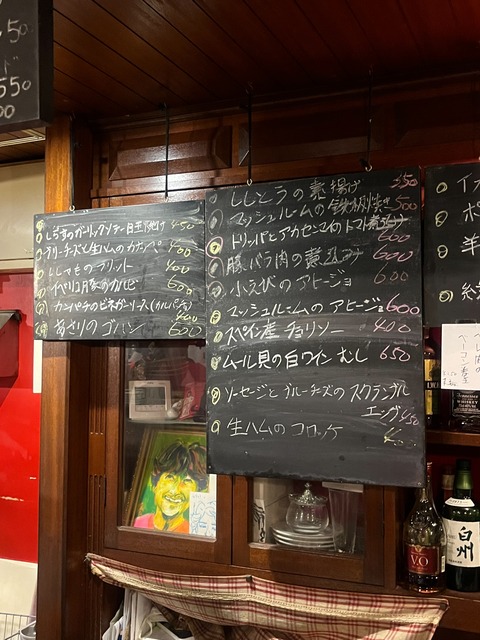 50
550
00
しらすのガーリックソテー目玉焼のせ 450
ブルーチーズと生ハムのカナッペ 400
ししゃものフリット 400
イベリコ豚のカルビ 600
カンパチのビネガーソース(カルパチョ) 400
あさりのゴハン 600
ししとうの素揚げ 350
マッシュルームの鉄板焼き 500
トリッパとアカセンマイのトマト煮込み 600
豚バラ肉の煮込み 600
小えびのアヒージョ 600
マッシュルームのアヒージョ 600
スペイン産チョリソー 400
ムール貝の白ワインむし 650
ソーセージとブルーチーズのスクランブル
エッグ 450
生ハムのコロッケ
イ
ポ
羊
V.O
白州